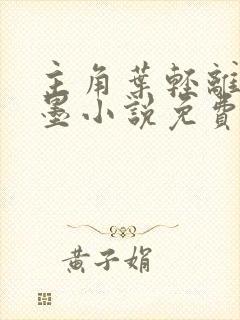 主角葉輕離
墨小說免費
黃子娟